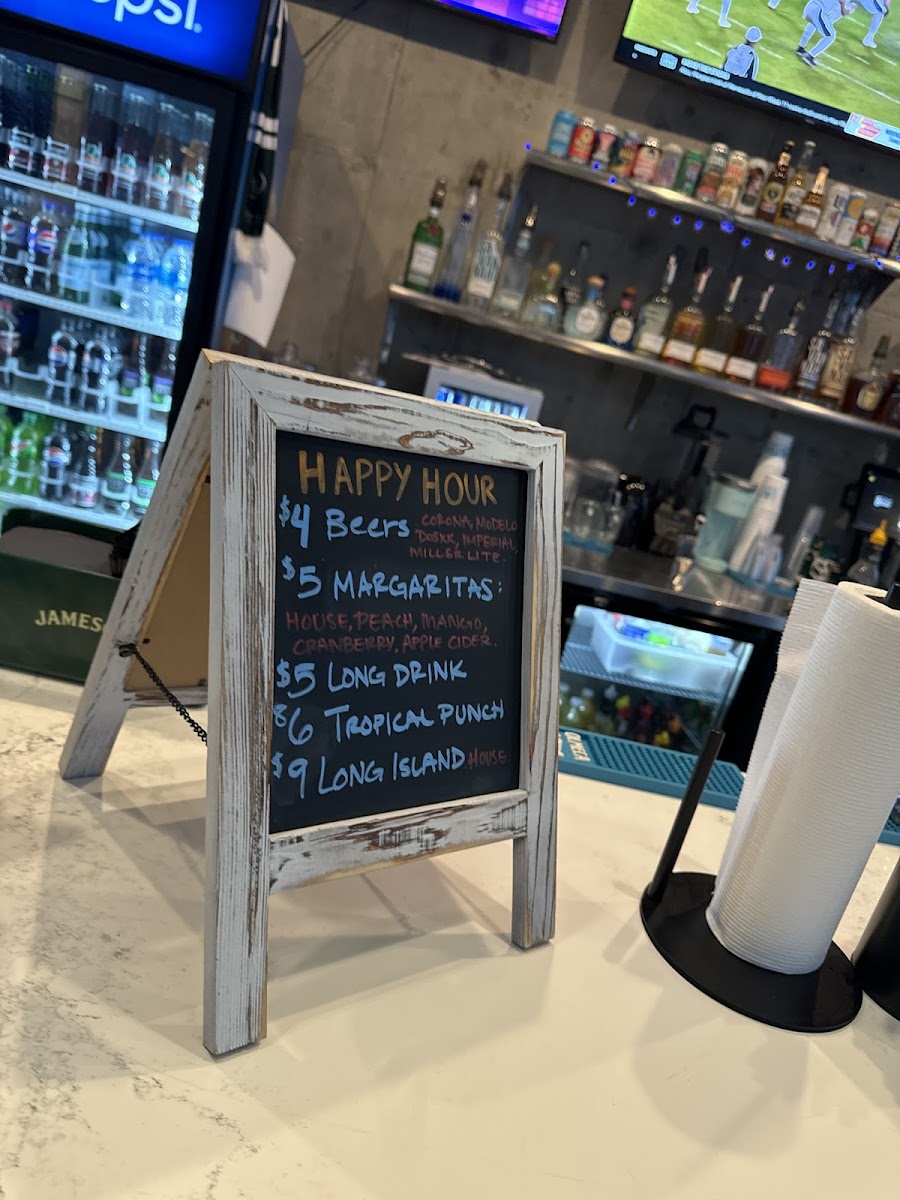 psi.
HAPPY HOUR
$4 BEERS CORONA, MODELO
DOSXX, IMPERIAL,
MILLER LITE.
$5 MARGARITAS:
HOUSE, PEACH, MANGO,
CRANBERRY, APPLE CIDER.
$5 LONG DRINK
$6 TROPICAL PUNCH
$9 LONG ISLAND HOUSE.
JAMES
OLMECA